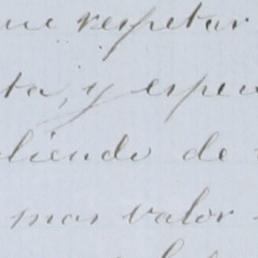 respetar
ta, y espe
liendo de
mas valor